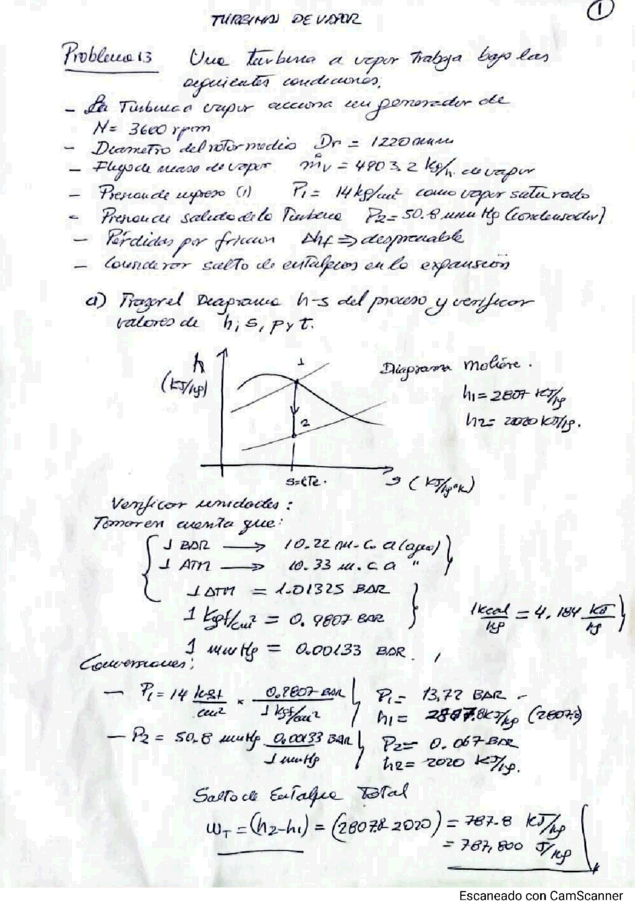 TURBINAS DE VAPOR
1
Problema 13 Una turbina a vapor trabaja bajo las
siguientes condiciones.
- La Turbina a vapor acciona un generador de
N= 3600 rpm
- Diametro del rotor medio Dr = 1220 mm
- Flujo de masa de vapor ṁv = 4903,2 kg/h de vapor
- Presion de ingreso (1) P1 = 14 kg/cm² como vapor saturado
- Presion de salida de la Turbina P2 = 50.8 mm Hg (condensador)
- Pérdidas por friccion Δhf => despreciable
- Considerar salto de entalpias en la expansión
a) Trazar el Diagrama h-s del proceso y verificar
valores de h, s, p y t.
h
(KJ/kg)
1
2
s=cte.
s (KJ/kg°K)
Diagrama Moliere.
h1 = 2807 KJ/kg
h2 = 2020 KJ/kg.
Verificar unidades:
Tomar en cuenta que:
1 BAR → 10.22 m.c.a (agua)
1 ATM → 10.33 m.c.a "
1 ATM = 1.01325 BAR
1 kgf/cm² = 0.9807 BAR
1 mmHg = 0.00133 BAR.
1 kcal/kg = 4,184 KJ/kg
Conversiones:
- P1 = 14 kgf/cm² × 0.9807 BAR / 1 kgf/cm² P1 = 13,72 BAR
h1 = 2807.8 KJ/kg (2807.8)
- P2 = 50.8 mmHg 0.00133 BAR / 1 mmHg P2 = 0.067 BAR
h2 = 2020 KJ/kg.
Salto de Entalpia Total
WT = (h2-h1) = (2807.8-2020) = 787.8 KJ/kg
= 787,800 J/kg
Escaneado con CamScanner